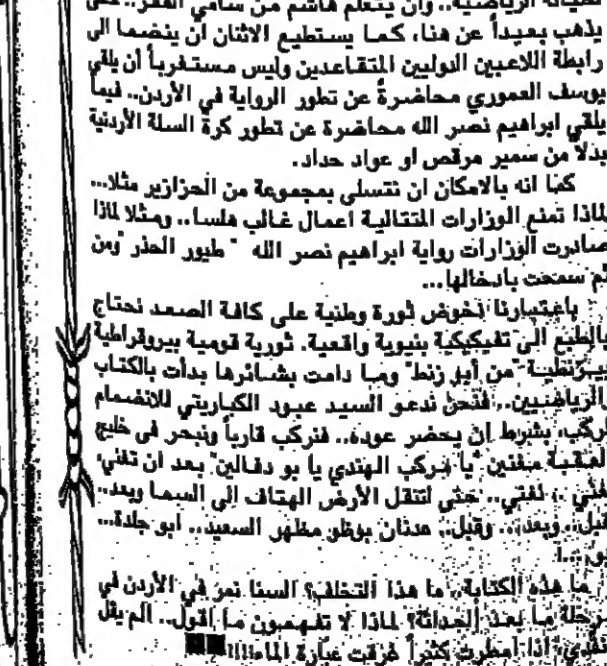 الرياضية.. وان يتعلم هاشم من سامي
يذهب بعيداً عن هنا، كما يستطيع الاثنان أن ينضما الى
رابطة اللاعبين الدوليين المتقاعدين وليس مستغرباً أن يلقي
يوسف العموري محاضرةً عن تطور الرواية في الأردن.. فيما
يلقي ابراهيم نصر الله محاضرة عن تطور كرة السلة الأردنية
بدلاً من سمير مرقص او عواد حداد.
كما انه بالامكان ان نتسلى بمجموعة من الحزازير مثلا...
لماذا تمنع الوزارات المتتالية اعمال غالب هلسا.. ومثلا لماذا
صادرت الوزارات رواية ابراهيم نصر الله " طيور الحذر "ومن
ثم سمحت بادخالها...
باعتبارنا نخوض ثورة وطنية على كافة الصعد نحتاج
بالطبع الى تفيكيكية بنيوية واقعية. ثورية قومية بيروقراطية
بيزنطية "من أبو زنط" وما دامت بشائرها بدأت بالكتاب
الرياضيين.. فنحن ندعو السيد عبود الكباريتي للانضمام
للركب، بشرط إن يحضر عوده.. فنركب قارباً ونبحر في خليج
العقبة مغنين "يا مركب الهندي يا بو دقالين" بعد ان تفني،
نفني .. نفني.. حتى لتنقل الأرض الهتاف الى السما وبعد..
قبل.. وبعد.. وقبل.. عدنان بوظو مظهر السعيد.. ابو جلدة...
ما هذه الكتابة، ما هذا التخلف؟ السنا نمر في الأردن في
مرحلة ما بعد الحداثة؟ لماذا لا تفهمون ما اقول.. الم يقل
اذا امطرت كثيراً غرقت عبارة الماء!!!!